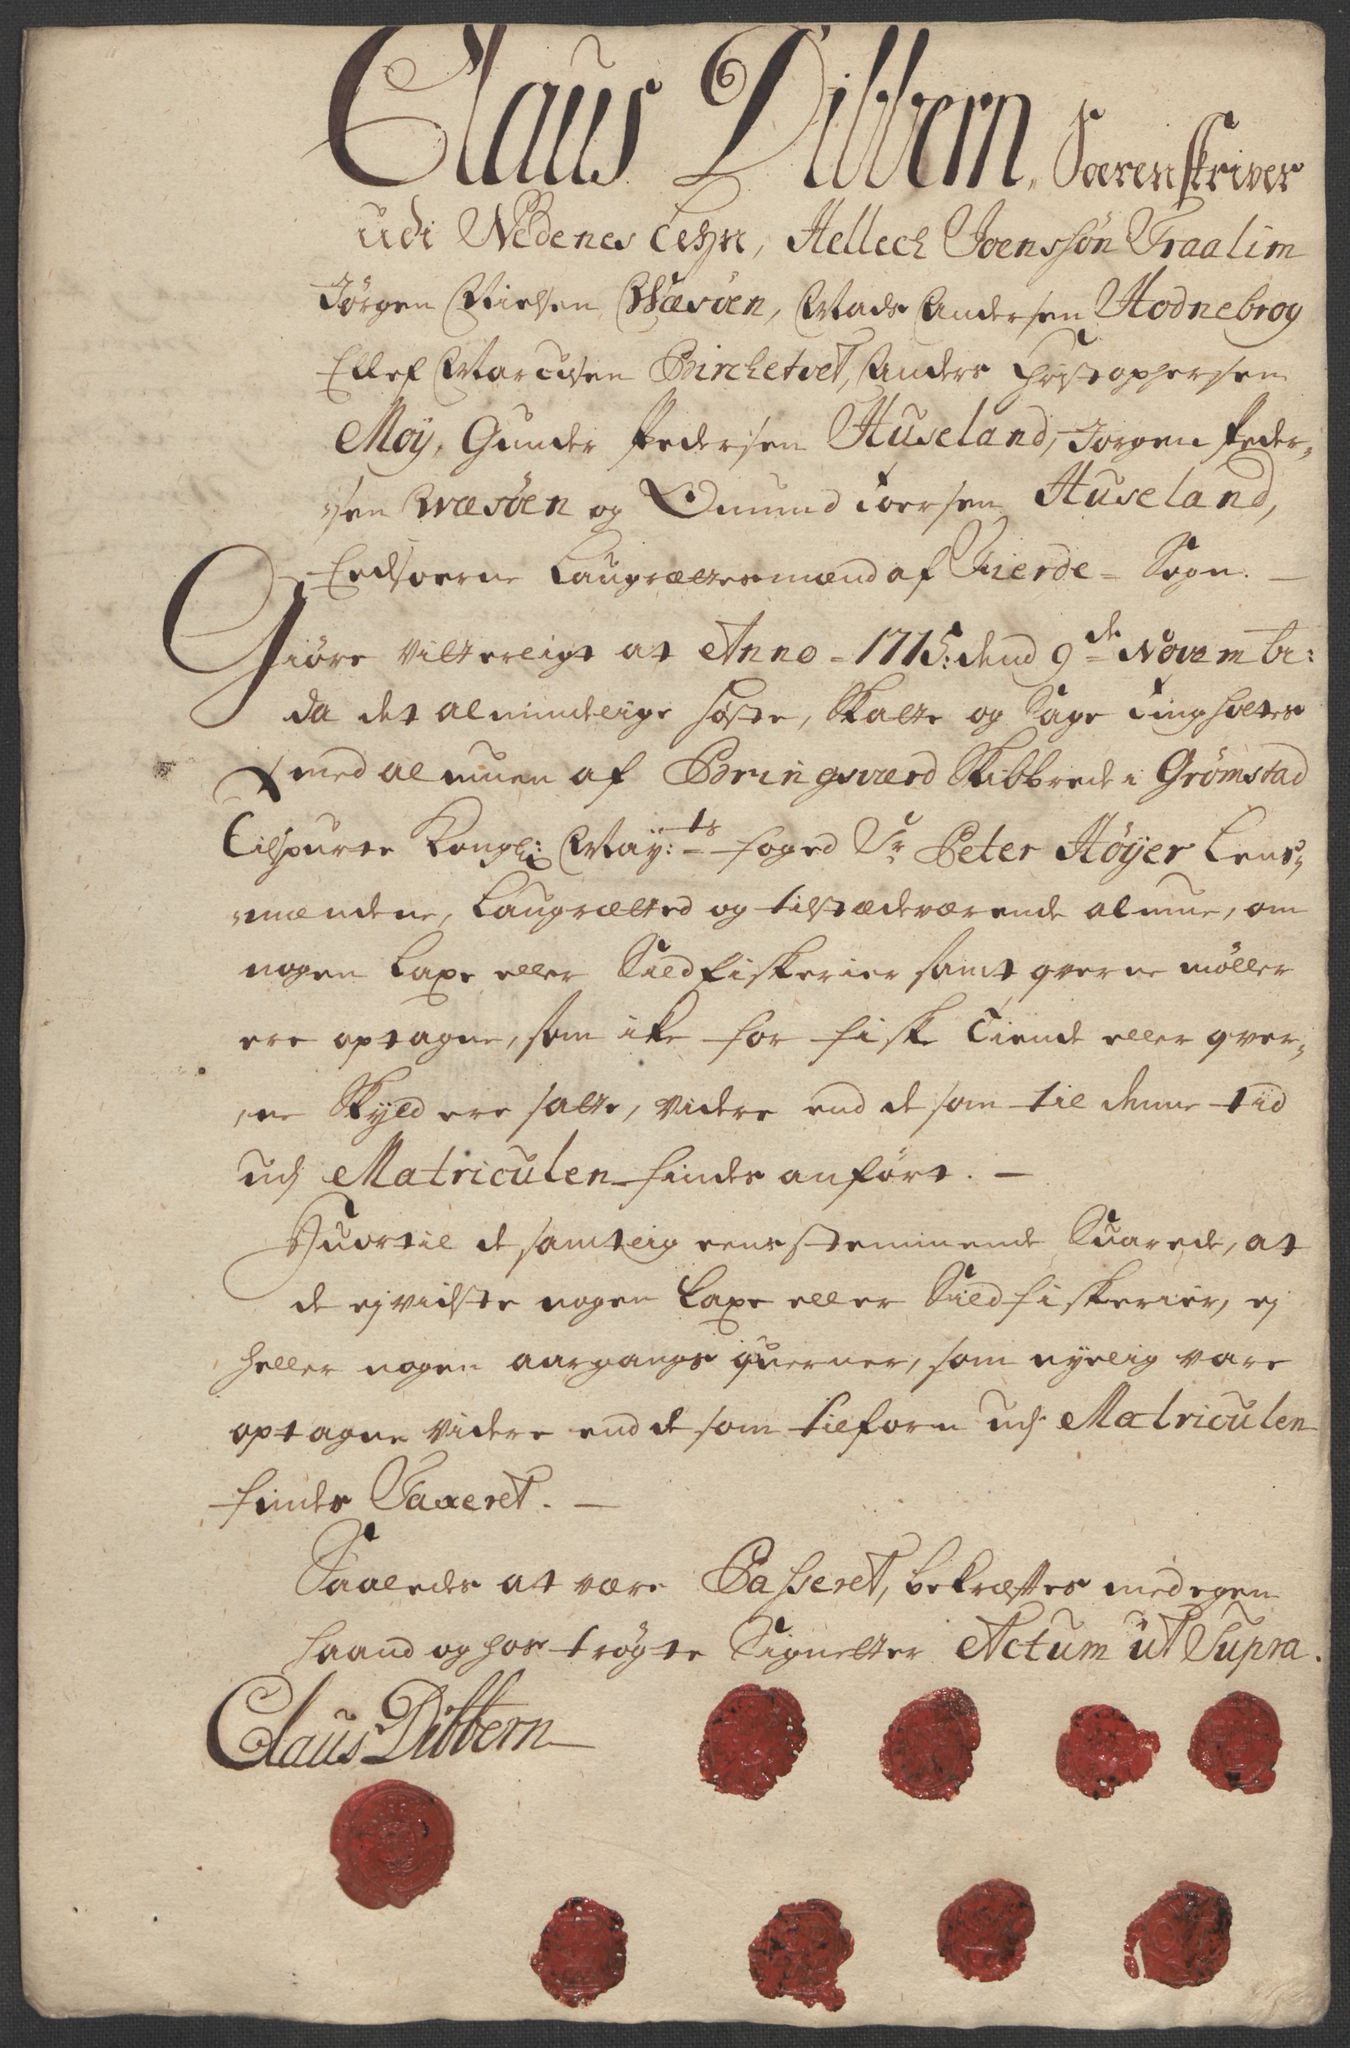 Claus Dibbern, Sorenskriver
udi Nedenes Lehn, Hellech Joenssøn Traalim
Jørgen Nielsen Wæsøen, Mads Andersen Hodnebrog
Ellef Marcusen Birchetvet, Anders Christophersen
Moÿ, Gunder Pedersen Huseland, Jørgen Peder-
sen Wæsøen og Omund Toersen Huseland,
Eedsoerne Laugrættesmænd af Fierde - Sogn. —
Giøre vitterligt at Anno - 1715: dend 9de Novembr:
da det almindelige høste, Skatte og Sage Ting holtes
med almuen af Bringsværd Skibbrede i Grømstad
Tilspurte Kongl: May:ts foged Sr Peter Høÿer Lens-
mændene, Laugrætted og tilstædeværende almue, om
nogen Laxe eller Sildfiskerier samt qverne møller
ere optagne, som ike for fiske Tiende eller qver-
ne Skyld ere satte, videre end de som til denne tid
udj Matriculen findes anført. —
Hvortil de samtlig eensstemmende Svarede, at
de ej vidste nogen Laxe eller Sildfiskerier, ej
heller nogen aargangs querner, som nyelig vare
optagne videre end de som tilforn udj Matriculen
findes Taxeret. —
Saaledes at være Passeret, bekræftes med egen
haand og hos trøgte Signetter Actum ut Supra.
Claus Dibbern